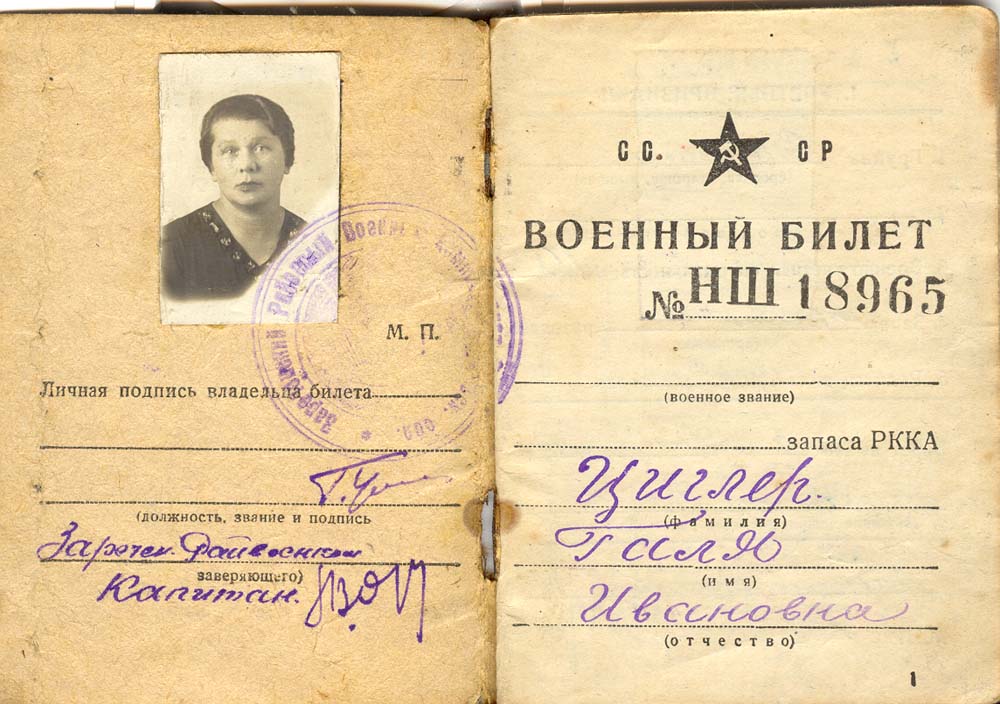 М. П.
Личная подпись владельца билета
(должность, звание и подпись
Заречен. Райвоенком
заверяющего)
Капитан.
СС. СР
ВОЕННЫЙ БИЛЕТ
№ НШ 18965
(военное звание)
запаса РККА
Циглер.
(фамилия)
Галя
(имя)
Ивановна
(отчество)
1